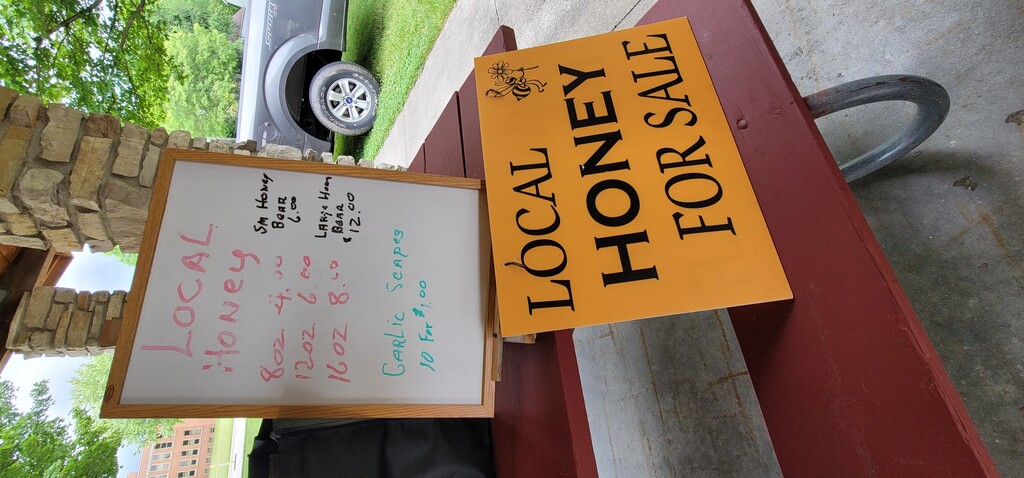 LOCAL
HONEY
8oz 4.00
12oz 6.00
16oz 8.00
Sm Honey
Bear
6.00
Large Hon
Bear
$12.00
Garlic Scapes
10 For $1.00
LOCAL
HONEY
FOR SALE